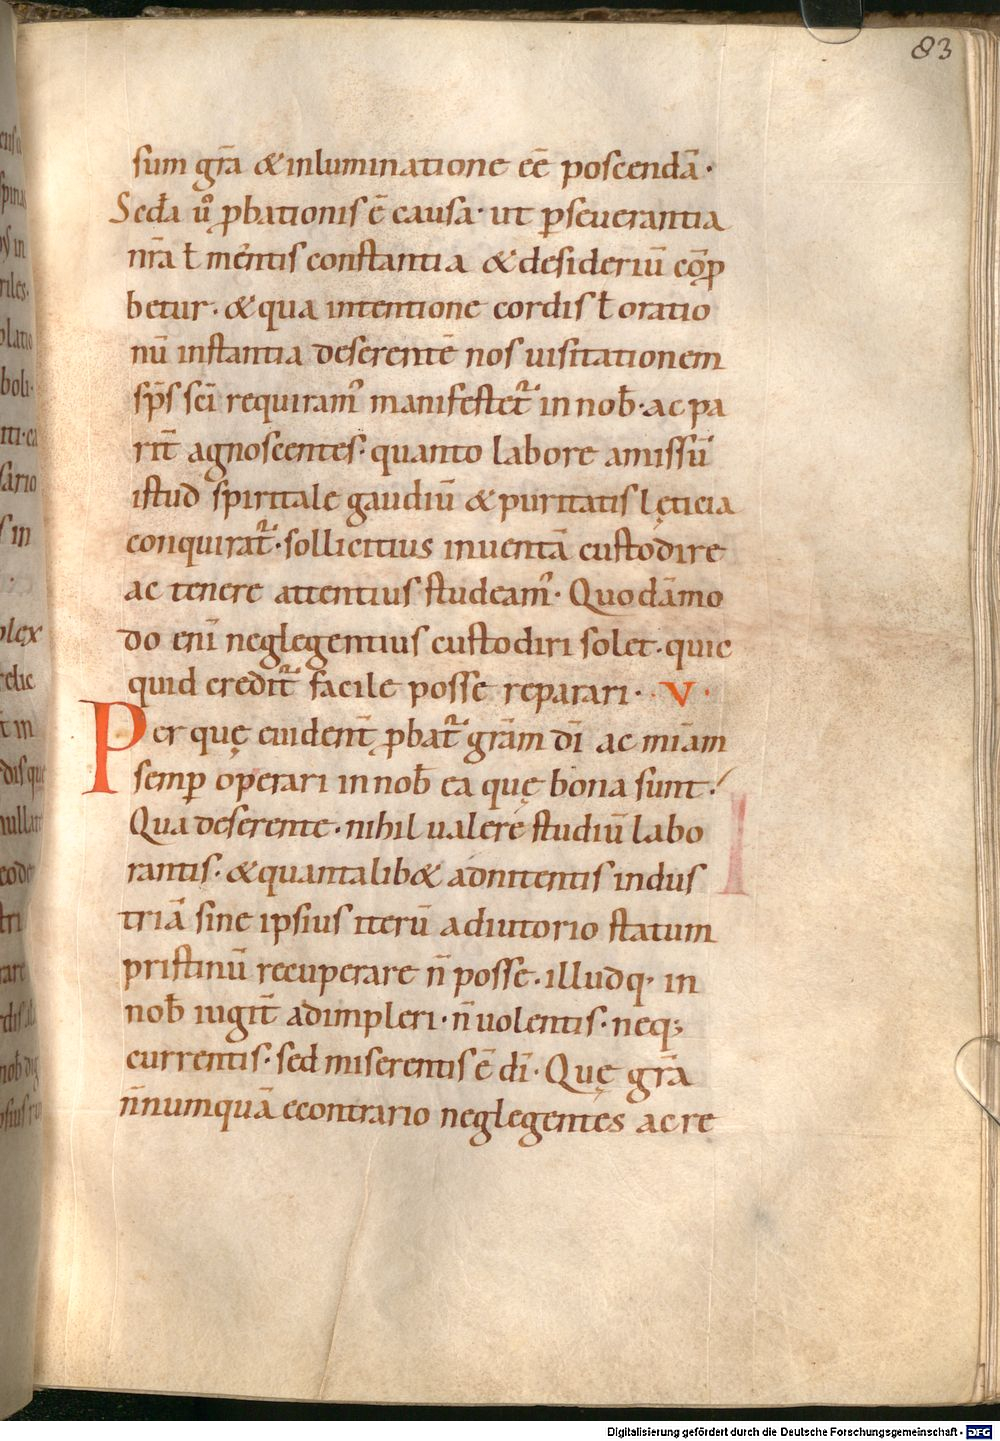 83
sum gr̄a & inluminatione eē poscendā·
Sec̄da ū̊ ꝓbationis ē causa· ut ꝑseuerantia
nr̄a ł mentis constantia & desideriū cōꝓ
betur· & qua intentione cordis ł oratio
nū instantia deserentē nos uisitationem
sp̄s sc̄i requiram᷒ manifestet᷑ in nob̄· ac pa
rit̄ agnoscentes· quanto labore amissū
istud spiritale gaudiū & puritatis lęticia
conquirat᷑· sollicitius inuentā custodire
ac tenere attentius studeam᷒· Quodāmo
do enī neglegentius custodiri solet· quic
quid credit᷑ facile posse reparari· V·
Per quę euident̄ ꝓbat᷑ gr̄am dī ac mīam
semꝑ operari in nob̄ ea quę bona sunt·
Qua deserente· nihil ualere studiū labo
rantis· & quantalib& adnitentis indus
triā sine ipsius iterū adiutorio statum
pristinū recuperare n̄ posse· illudq· in
nob̄ iugit̄ adimpleri· n̄ uolentis· neq;
currentis· sed miserentis ē dī· Quę gr̄a
n̄numquā econtrario neglegentes ac re
Digitalisierung gefördert durch die Deutsche Forschungsgemeinschaft - DFG